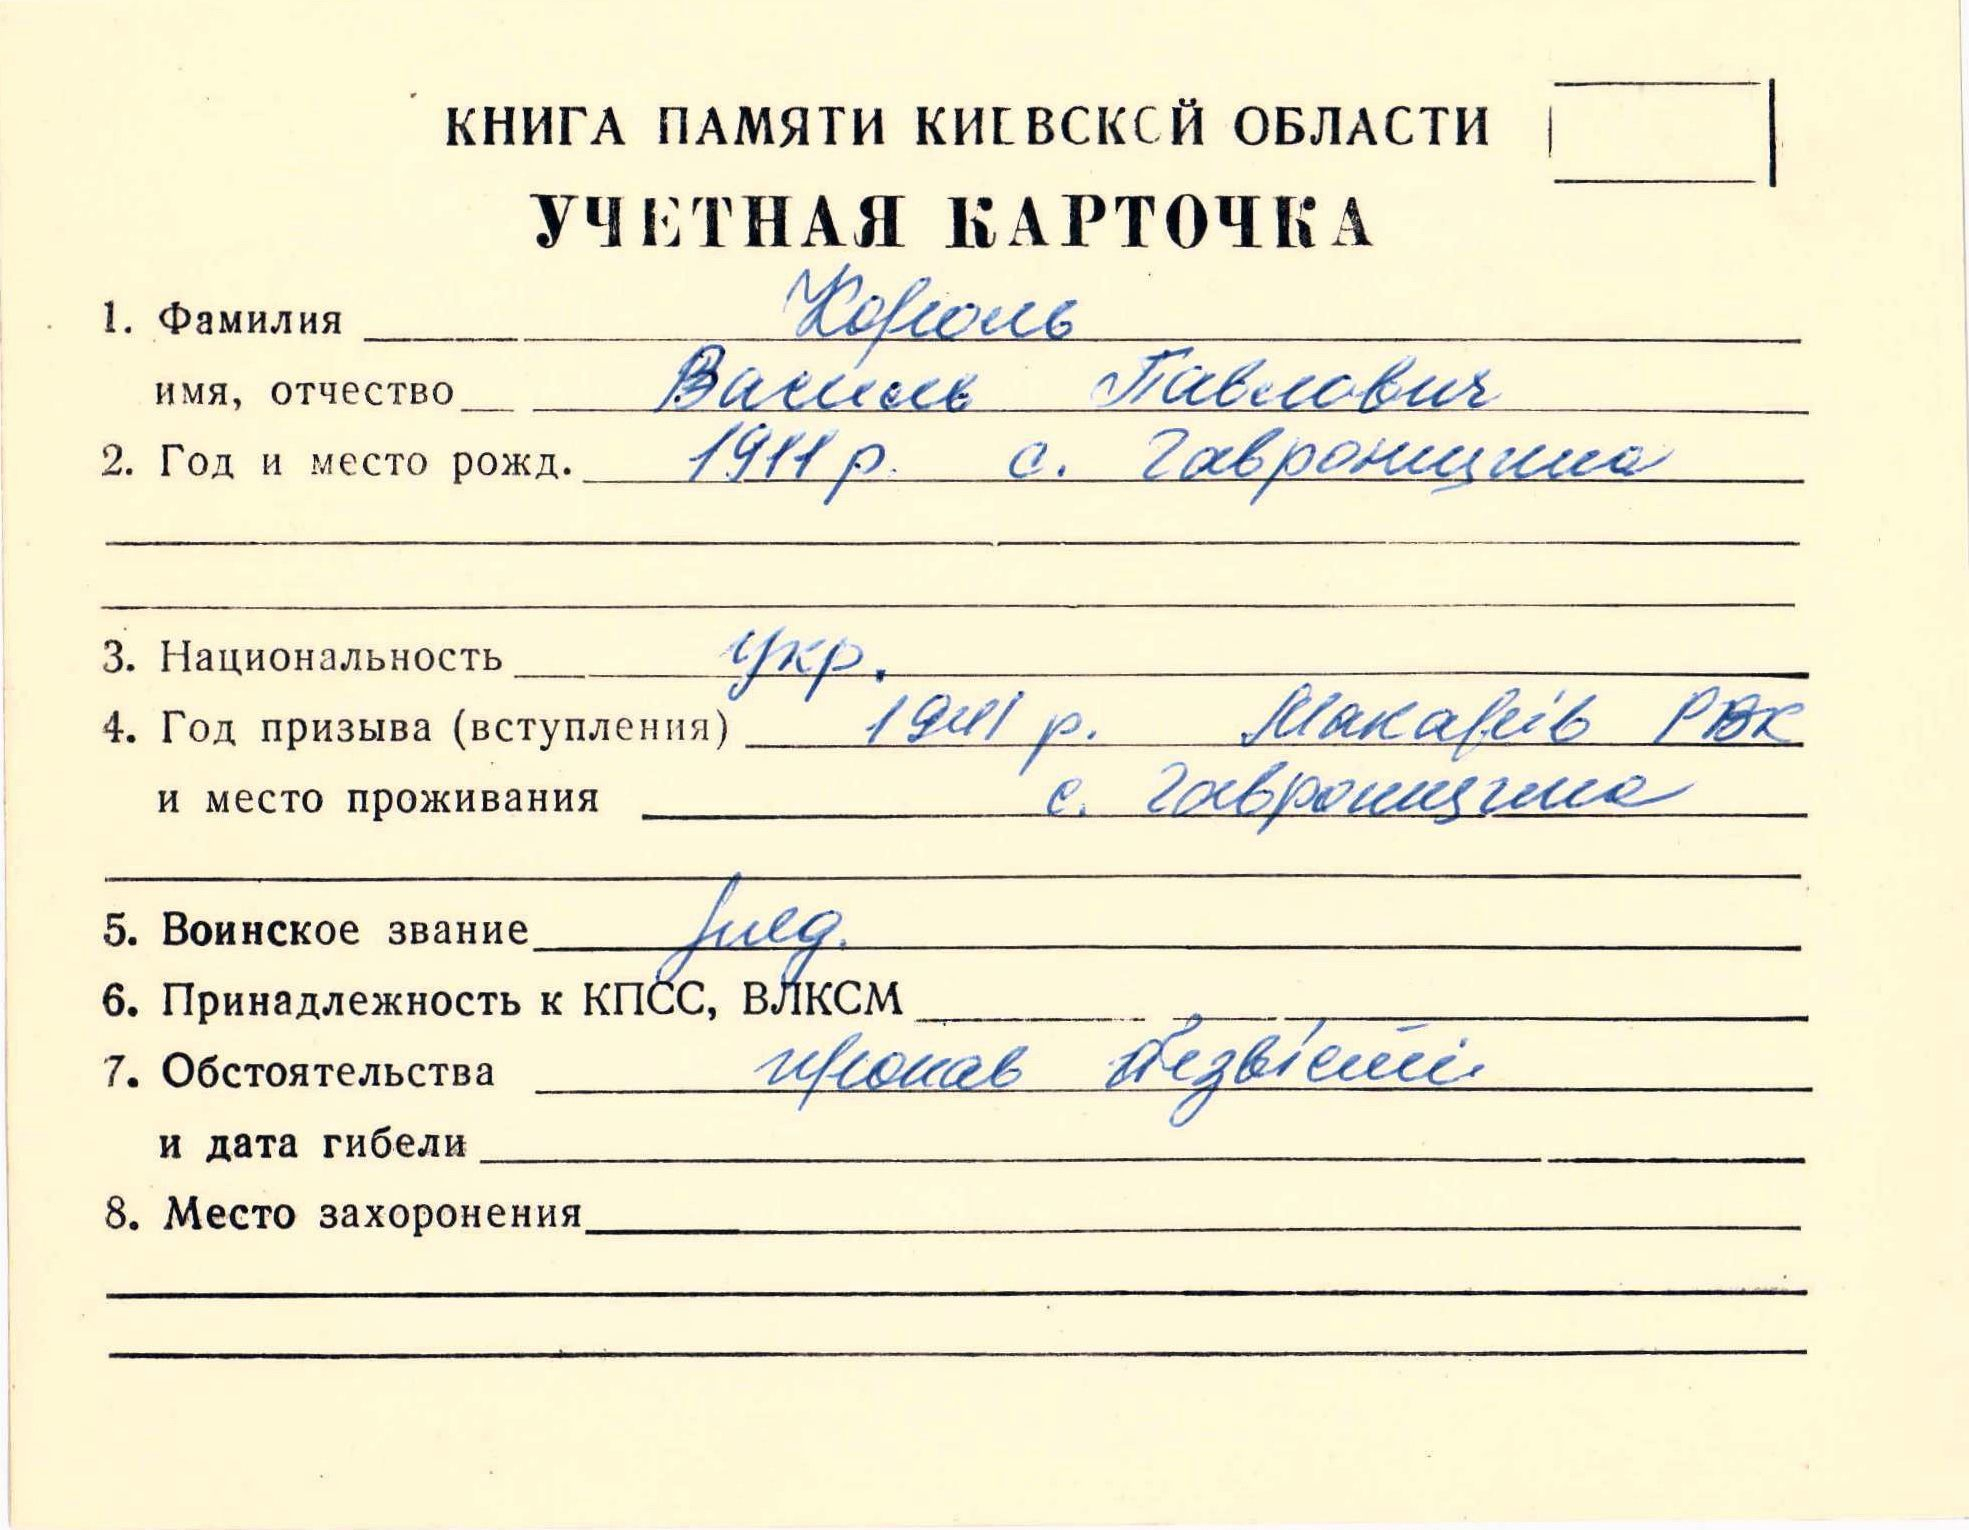 КНИГА ПАМЯТИ КИЕВСКОЙ ОБЛАСТИ
УЧЕТНАЯ КАРТОЧКА
1. Фамилия Король
имя, отчество Василь Павлович
2. Год и место рожд. 1911 р. с. Гавронщина
3. Национальность укр.
4. Год призыва (вступления) 1941 р. Макарів РВК
и место проживания с. Гавронщина
5. Воинское звание
6. Принадлежность к КПСС, ВЛКСМ
7. Обстоятельства пропав безвісті
и дата гибели
8. Место захоронения